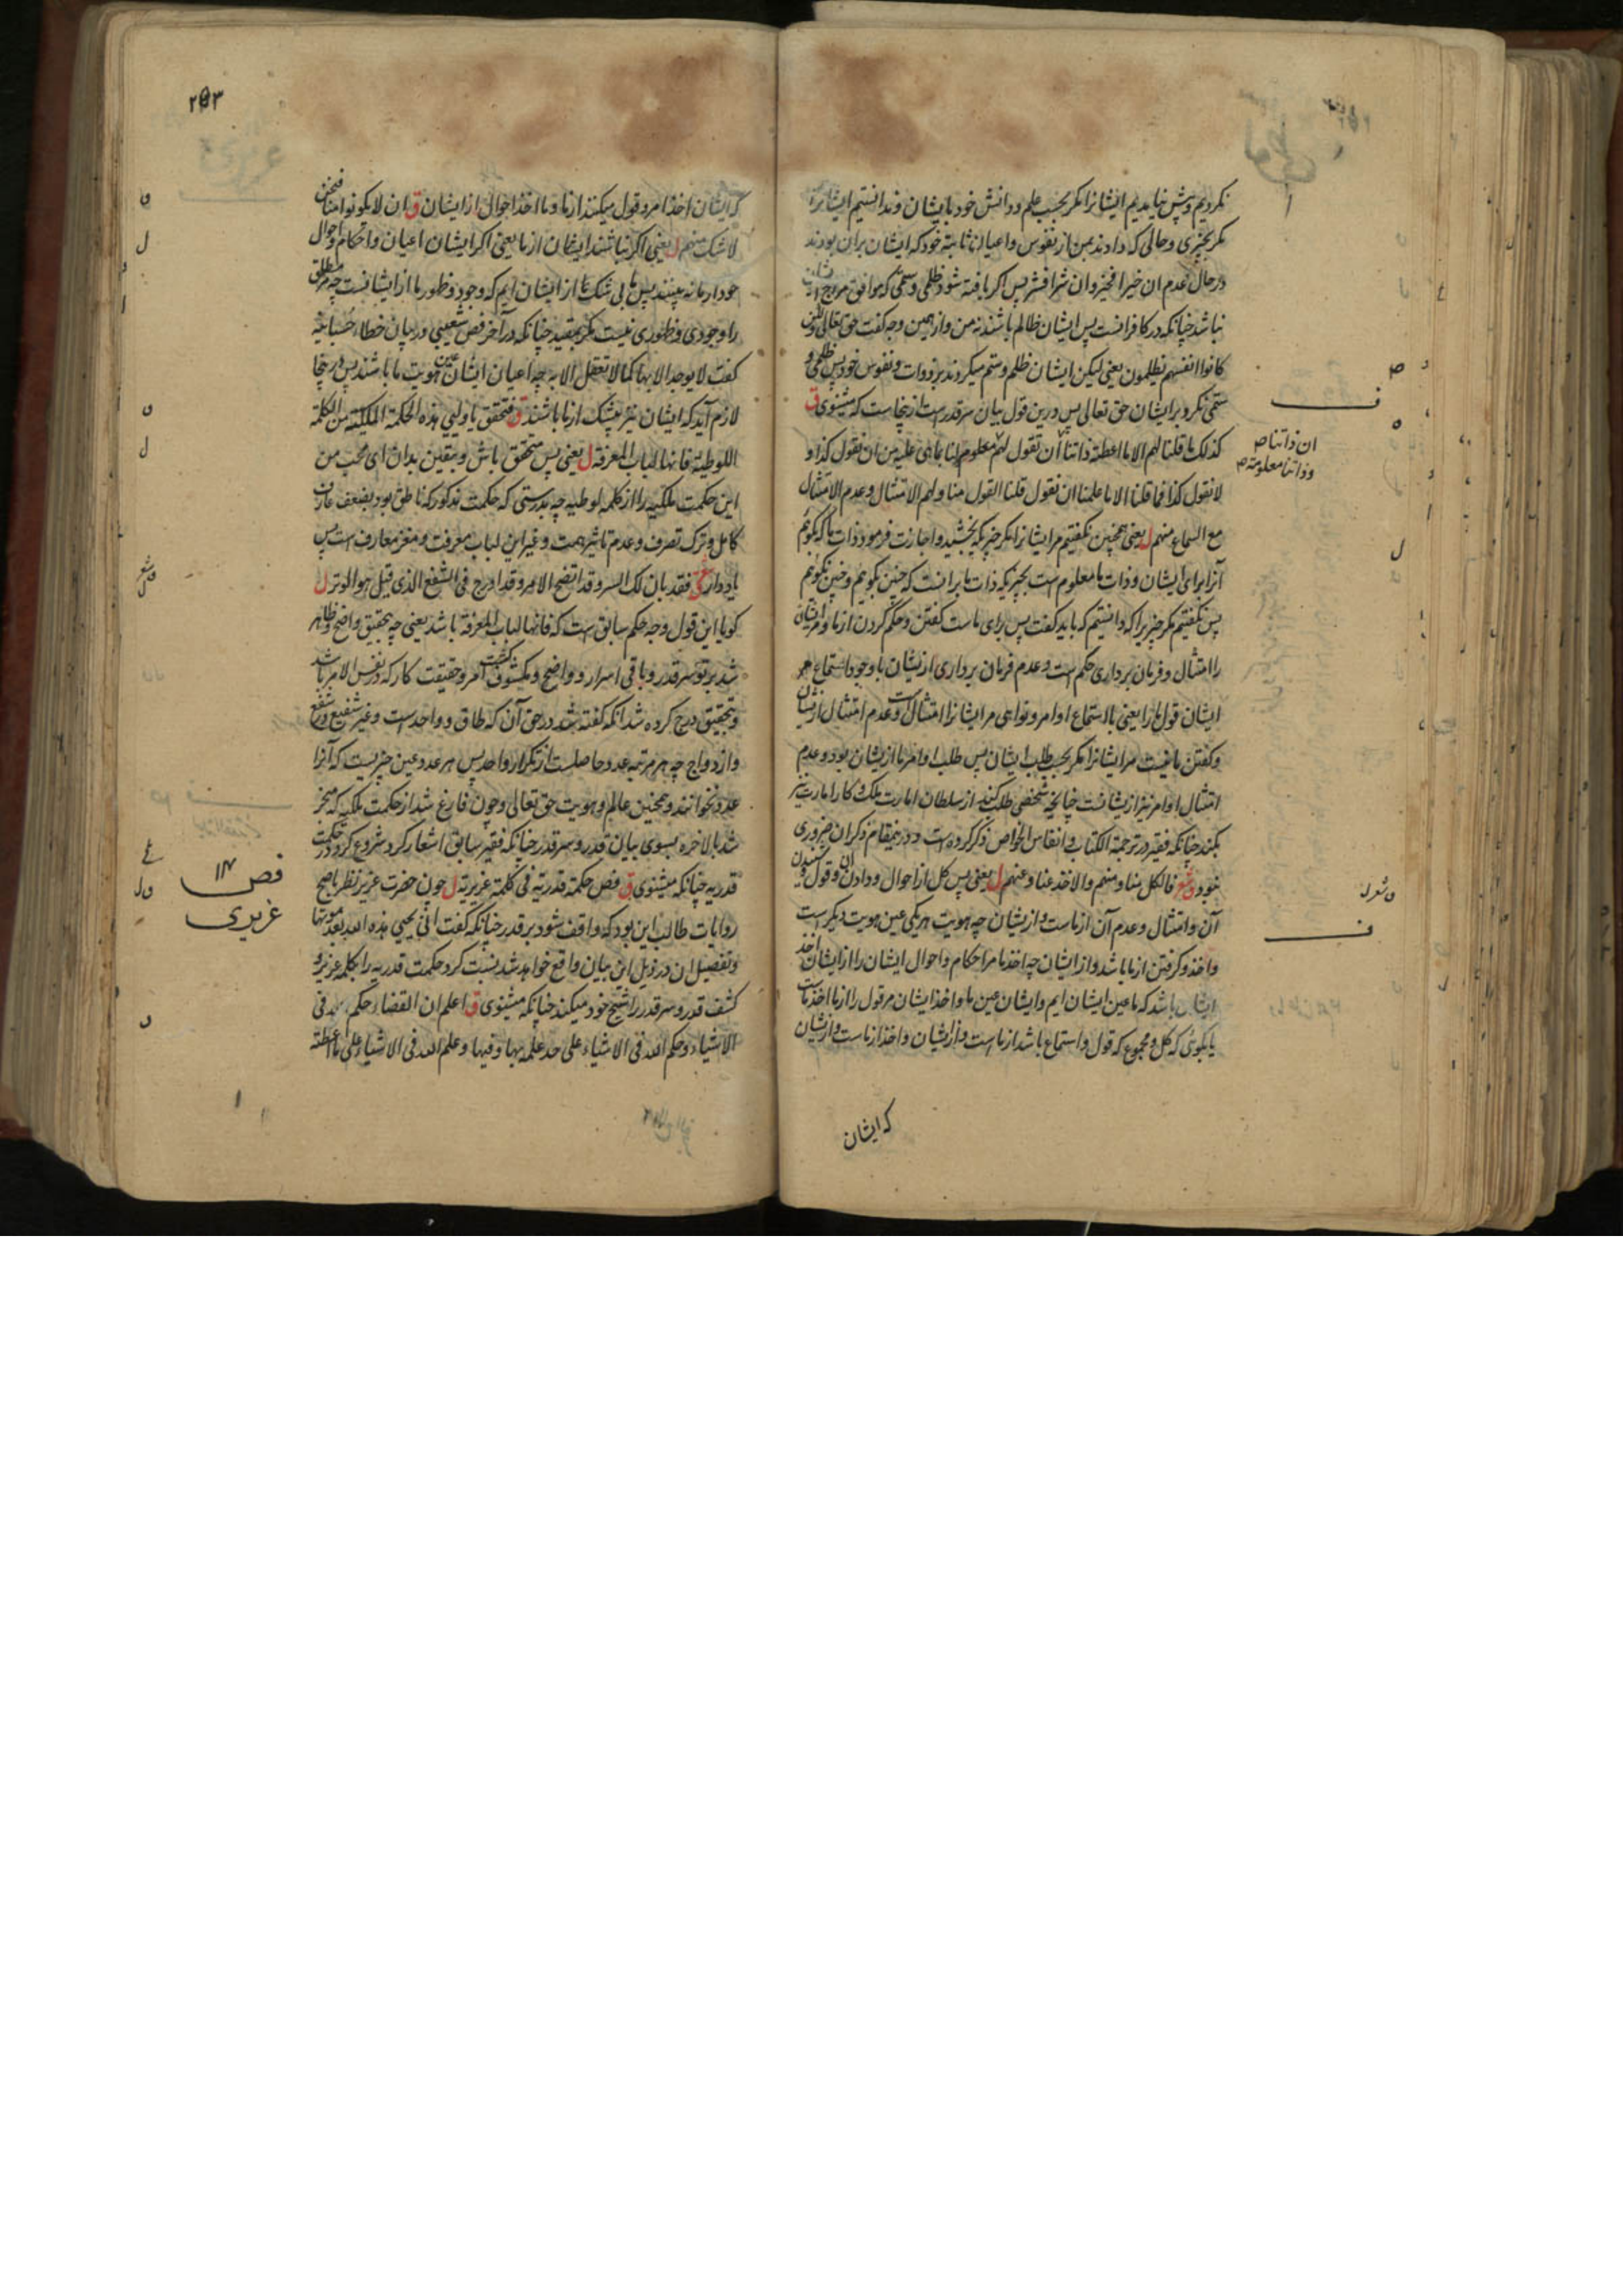 نکردیم و پیش نیامدیم ایشانرا مکر بحسب علم و دانش خود بایشان و ندانستیم ایشانرا
مکر بچیزی و حالی که دادند بمن از نفوس و اعیان ثابته خود که ایشان بران بودند
در حال عدم ان خیرا فخیر و ان شرا فشر پس اکر یافته شود ظلمی و ستمی که موافق مزاج
نباشد چنانکه در کافرانست پس ایشان ظالم باشند نه من و از همین وجه کفت حق تعالی ولکن
کانوا انفسهم یظلمون یعنی لیکن ایشان ظلم و ستم میکردند بر ذوات و نفوس خود پس ظلمی و
ستمی نکرد بر ایشان حق تعالی پس درین قول بیان سر قدرست ازینجاست که میشنوی ق
کذلک ما قلنا لهم الا ما اعطته ذاتنا ان نقول لهم معلوم لنا بما هی علیه من ان نقول کذا و
ان ذاتنا ص
و ذاتنا معلومة ص
لا نقول کذا فما قلنا الا ما علمنا ان نقول قلنا القول منا و لهم الامتثال و عدم الامتثال
مع السماع منهم ل یعنی همچنین نکفتیم مر ایشانرا مکر چیزیکه بخشید و اجازت فرمود ذات ما که بکویم
آنرا برای ایشان و ذات ما معلوم است بچیزیکه ذات ما برانست که چنین بکویم و چنین نکویم
پس نکفتیم مکر چیزیرا که دانستیم که باید کفت پس برای ماست کفتن و حکم کردن از ما و مر ایشان
را امتثال و فرمان برداری حکم است و عدم فرمان برداری ازیشان با وجود استماع
ایشان قول ما را یعنی با استماع اوامر و نواهی مر ایشانرا امتثال است و عدم امتثال ازیشان
و کفتن ما نیست مر ایشانرا مکر بحسب طلب ایشان پس طلب اوامر ما ازیشان بود و عدم
امتثال اوامر نیز ازیشانست چنانچه شخصی طلب کند از سلطان امارت ملک و کار امارت نیز
بکند چنانکه فقیر در ترجمة الکتاب و انفاس الخواص ذکر کرده است و درینمقام ذکر ان ضروری
نبود ق شعر فالکل منا و منهم و الاخذ عنا و عنهم ل یعنی پس کل از احوال و دادن ان و قول و شنیدن
آن و امتثال و عدم آن از ماست و ازیشان چه هویت هر یکی عین هویت دیکرست
و اخذ و کرفتن از ما باشد و از ایشان چه اخذ ما مر احکام و احوال ایشان را از ایشان اخذ
ایشان باشد که ما عین ایشان ایم و ایشان عین ما و اخذ ایشان مر قول را از ما اخذ ماست
یا بکوئی که کل و مجموع که قول و استماع باشد از ماست و ازیشان و اخذ از ماست و ازیشان
که ایشان
۲۵۳
که ایشان اخذ امر و قول میکنند از ما و ما اخذ احوال از ایشان ق ان لا یکونوا منا فنحن
لا شک منهم ل یعنی اکر نباشند ایشان از ما یعنی اکر ایشان اعیان و احکام و احوال
خود از ما نه بینند پس ما بی شک از ایشان ایم که وجود و ظهور ما از ایشانست چه مطلق
را وجودی و ظهوری نیست مکر بمقید چنانکه در آخر فص شعیبی در بیان خطاء حسبانیه
کفت لا یوجد الا بها کما لا تعقل الا به چه اعیان ایشان عین هویت ما باشند پس ازینجا
لازم آید که ایشان نیز بیشک از ما باشند ق فتحقق یا ولیی هذه الحکمة الملکیة من الکلمة
اللوطیة فانها لباب المعرفة ل یعنی پس متحقق باش و بیقین بدان ای محب من
این حکمت ملکیه را از کلمه لوطیه چه بدرستی که حکمت مذکور که ناطق بود بضعف عارف
کامل و ترک تصرف و عدم تاثیر همت و غیر این لباب معرفت و مغز معارف است پس
یاد دار ق فقد بان لک السر و قد اتضح الامر و قد ادرج فی الشفع الذی قیل هو الوتر ل
کویا این قول وجه حکم سابق است که فانها لباب المعرفة باشد یعنی چه بتحقیق واضح و ظاهر
شد بر تو سر قدر و باقی اسرار و واضح و مکشوف کشت امر و حقیقت کار که در نفس الامر باشد
و بتحقیق درج کرده شد انکه کفته شد در حق آن که طاق و واحدست و غیر شفیع در شفع
و ازدواج چه هر مرتبه عدد حاصلست از تکرار واحد پس هر عدد عین چیزیست که آنرا
عدد نخوانند و همچنین عالم و هویت حق تعالی و چون فارغ شد از حکمت ملکیه که منجر
شد بالاخره بسوی بیان قدر و سر قدر چنانکه فقیر سابق اشعار کرد شروع کرد در حکمت
قدریه چنانکه میشنوی ق فص حکمة قدریة فی کلمة عزیریة ل چون حضرت عزیر نظر باصح
فص ۱۴
عزیری
روایات طالب این بود که واقف شود بر قدر چنانکه کفت انی یحیی هذه الله بعد موتها
و تفصیل ان در ذیل این بیان واقع خواهد شد نسبت کرد حکمت قدریه را بکلمه عزیریه و
کشف قدر و سر قدر را شیخ خود میکند چنانکه میشنوی ق اعلم ان القضاء حکم الله فی
الاشیاء و حکم الله فی الاشیاء علی حد علمه بها و فیها و علم الله فی الاشیاء علی ما اعطته